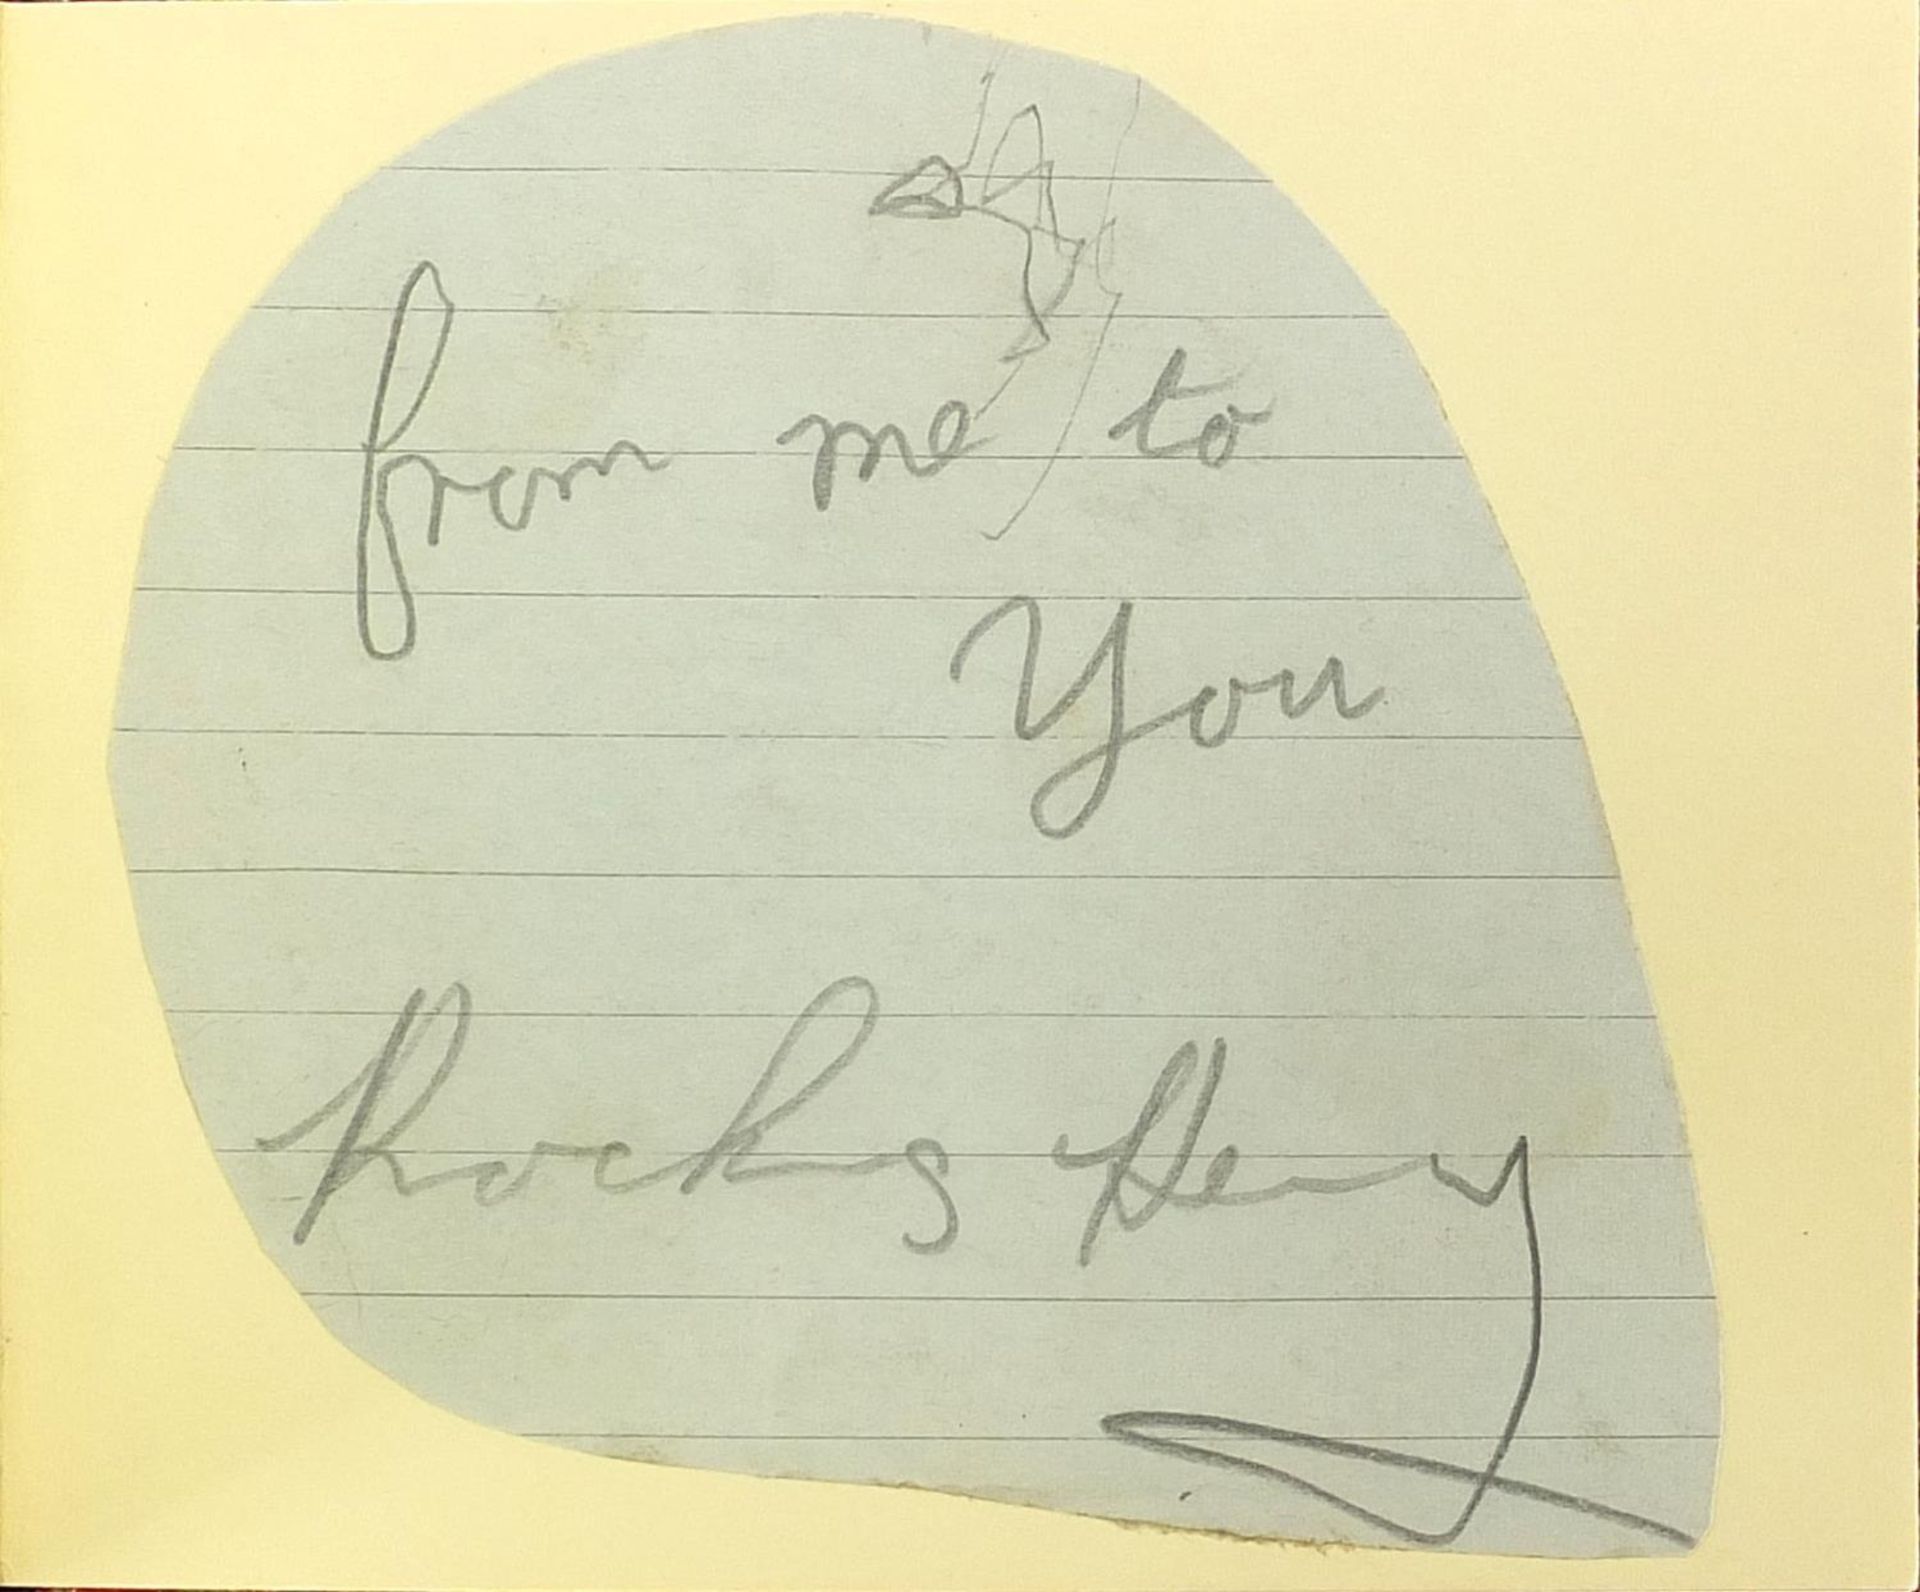 from me to
You
Rocky Henry